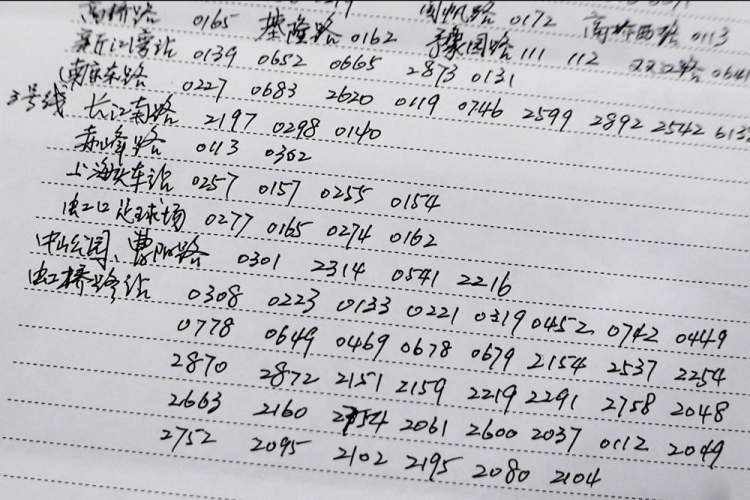 高桥路 0165 基隆路 0162 0172 0113
新江湾城 0139 0652 0665 2873 0131 豫园路 111 112 双江路 0641
南京东路 0227 0683 2620 0119 0746 2599 2892 2542 6132
3号线 长江南路 2197 0298 0140
赤峰路 0113 0302
上海火车站 0257 0157 0255 0154
虹口足球场 0277 0165 0274 0162
中山公园、曹杨路 0301 2314 0541 2216
虹桥路站 0308 0223 0133 0221 0319 0452 0742 0449
0778 0649 0469 0678 0679 2154 2537 2254
2870 2872 2151 2159 2219 2291 2758 2048
2663 2160 2754 2061 2600 2037 0112 2049
2752 2095 2102 2195 2080 2104